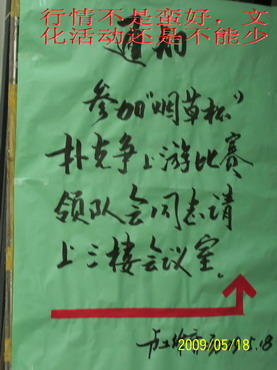 行情不是蛮好，文
化活动还是不能少
通知
参加“烟草杯”
扑克争上游比赛
领队会同志请
上三楼会议室。
2009/05/18